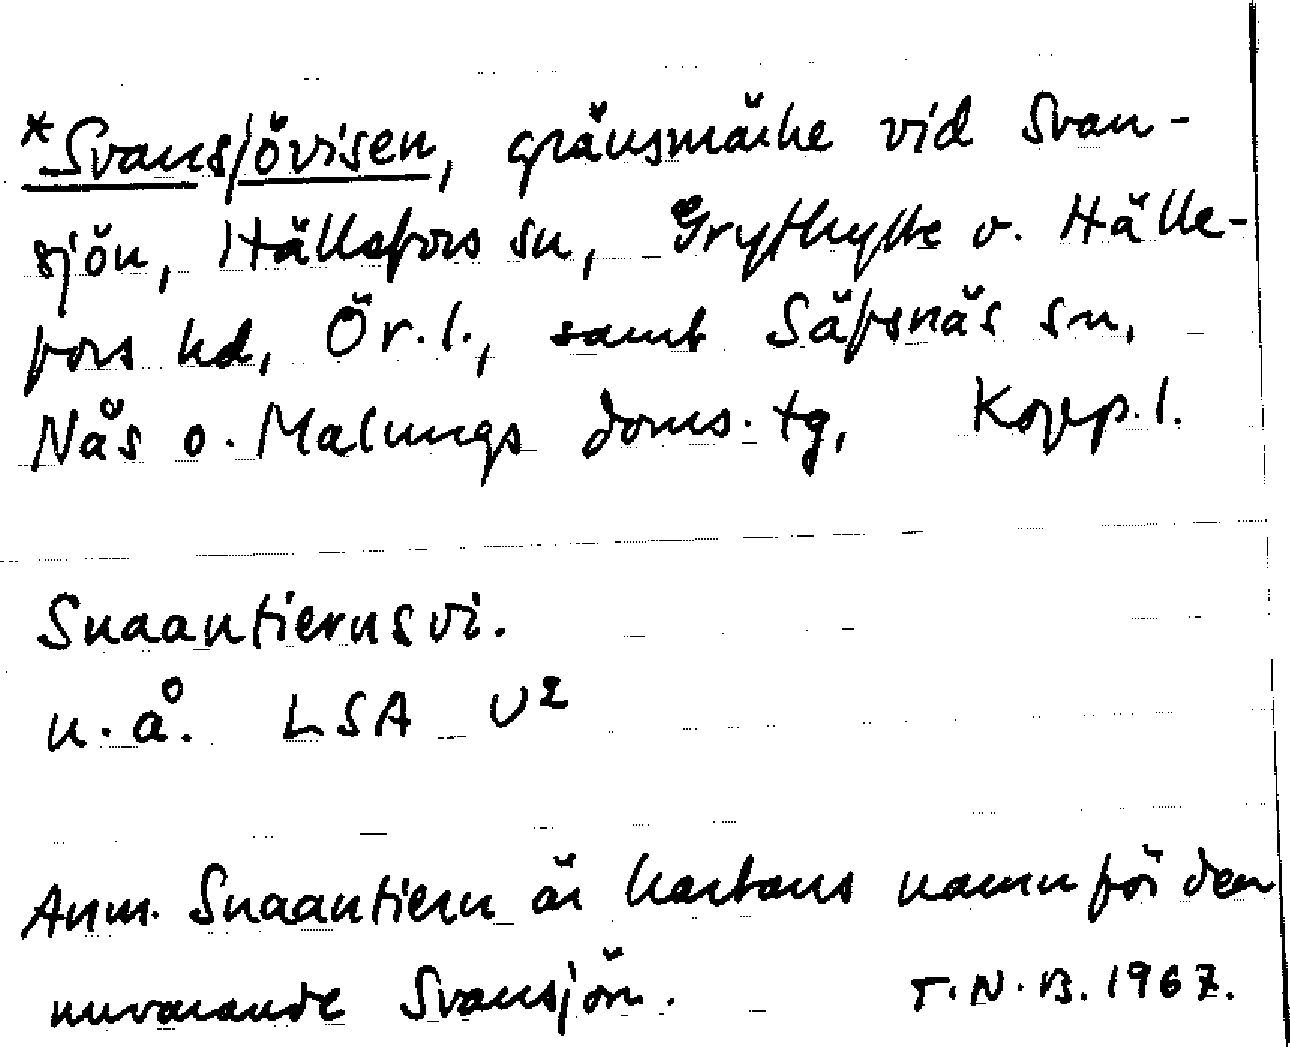 *Svansjövisen, gränsmärke vid Svan-
sjön, Hällefors sn, Grythytte o. Hälle-
fors hd, Ör. l., samt Säfsnäs sn,
Nås o. Malungs doms. tg, Kopp. l.
Snaantiernsvi.
u.å. LSA U²
Anm. Snaantiern är kartans namn för den
nuvarande Svansjön. T.N.B. 1967.